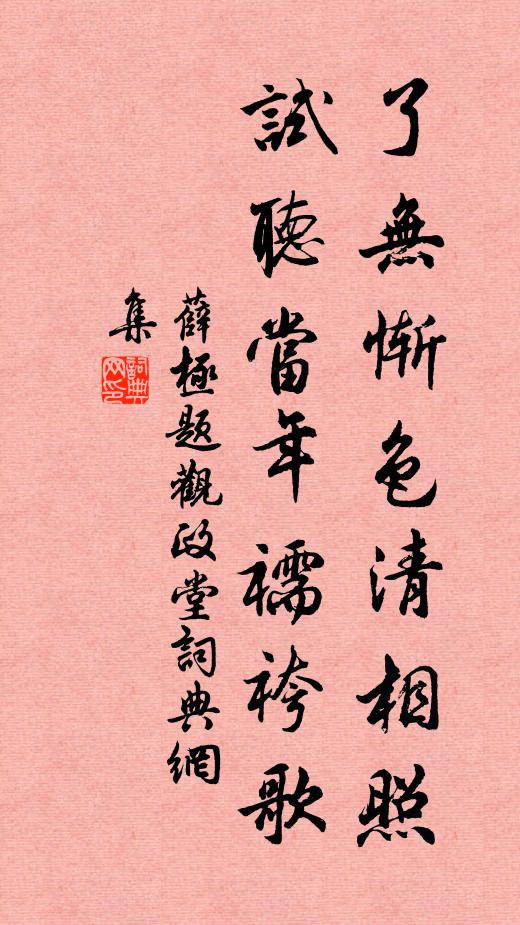 了無慚色清相照
試聽當年襦袴歌
薛極題觀政堂詞典網
集
詞典网印